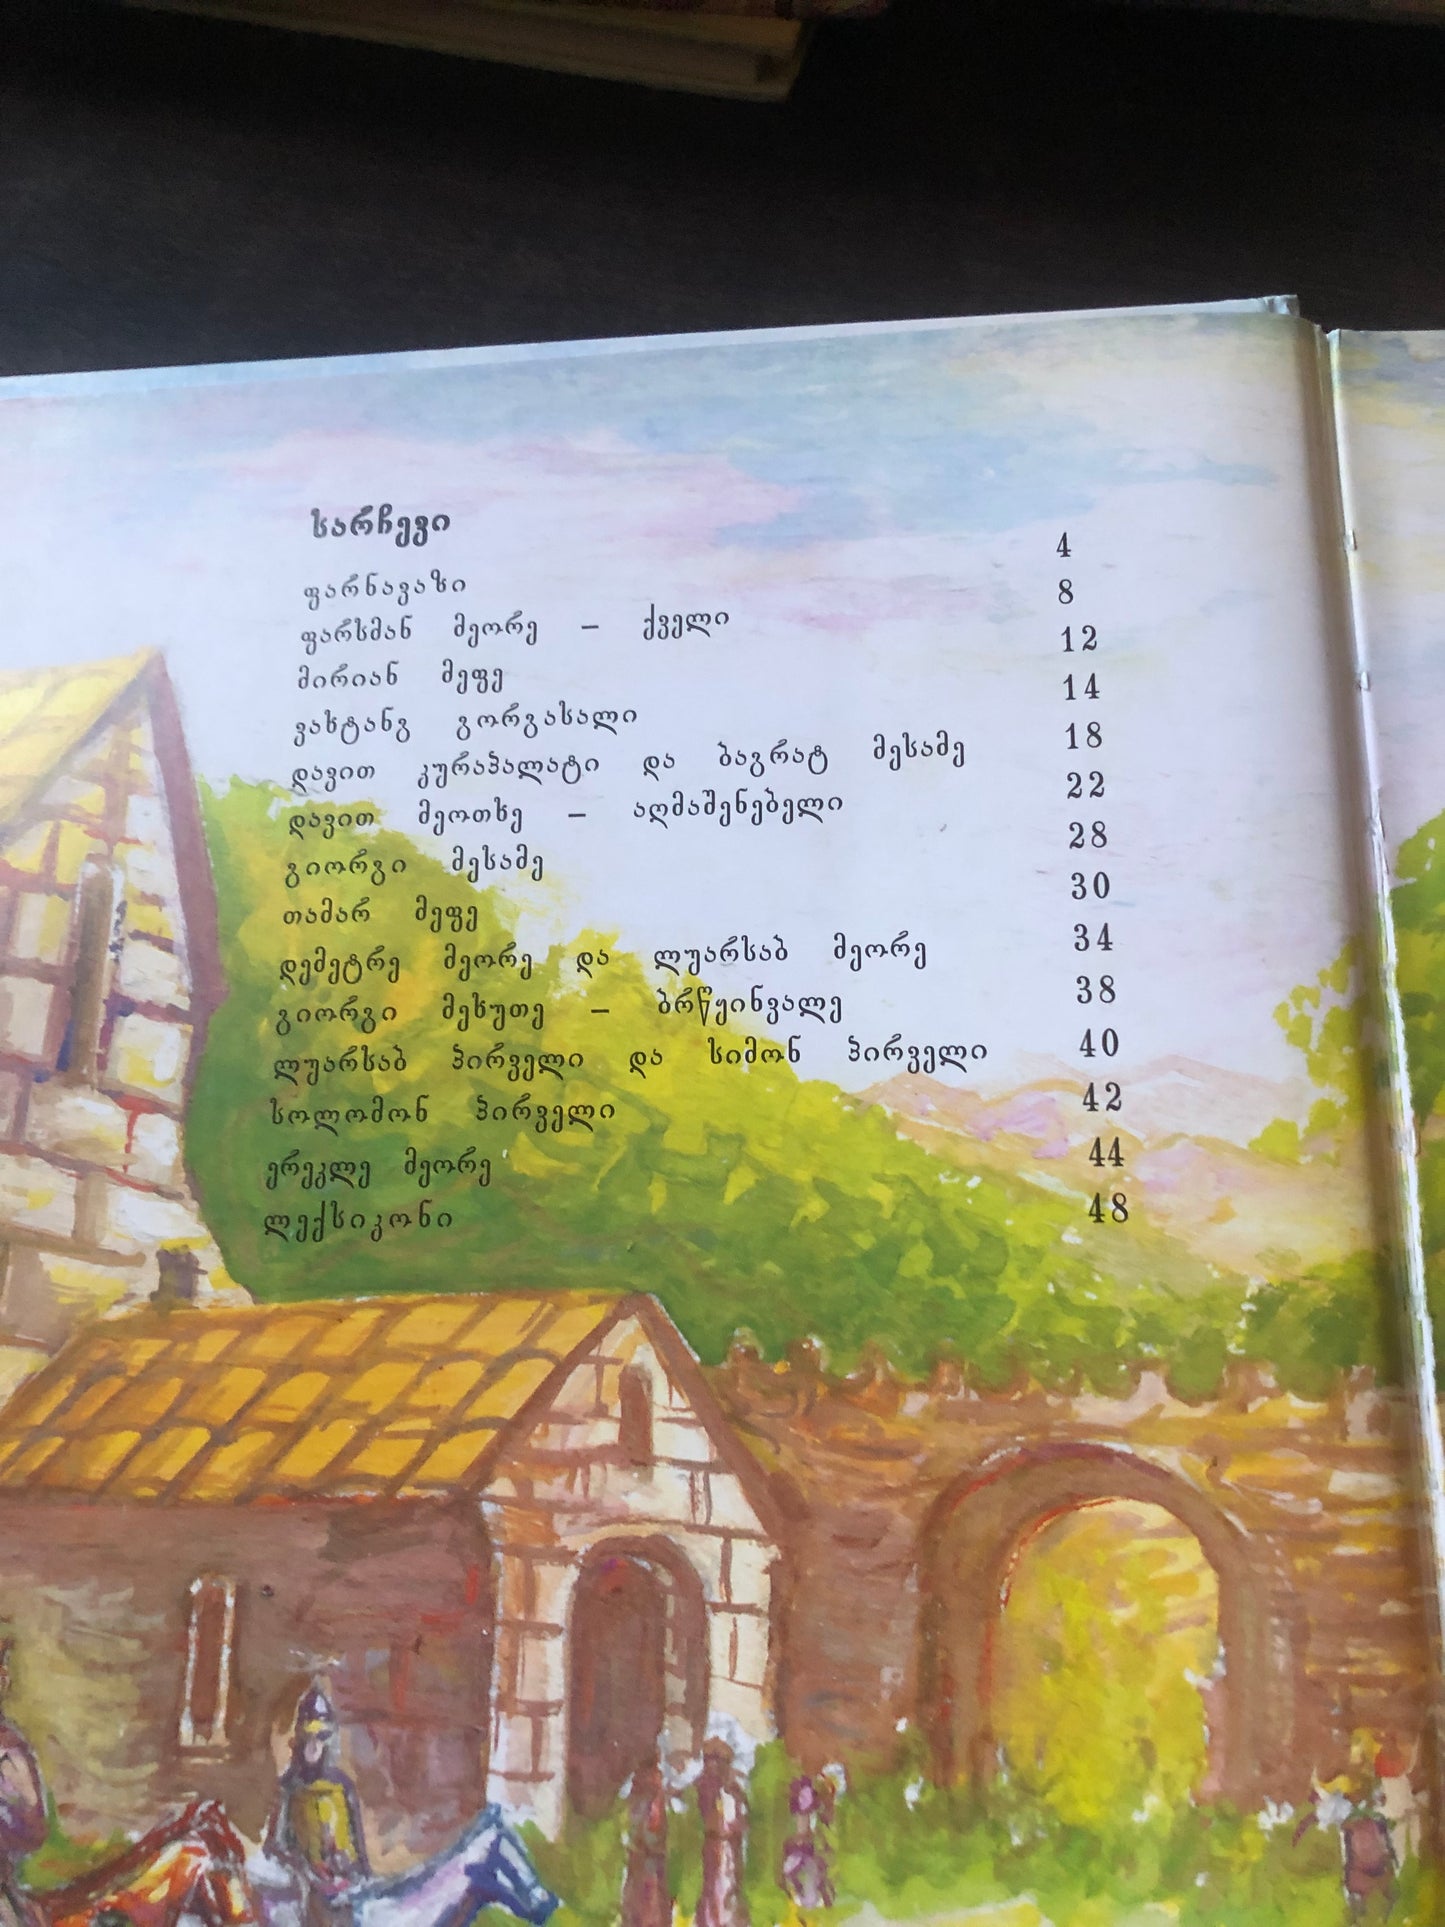 სარჩევი
ფარნავაზი 4
ფარსმან მეორე – ქველი 8
მირიან მეფე 12
ვახტანგ გორგასალი 14
დავით კურაპალატი და ბაგრატ მესამე 18
დავით მეოთხე – აღმაშენებელი 22
გიორგი მესამე 28
თამარ მეფე 30
დემეტრე მეორე და ლუარსაბ მეორე 34
გიორგი მეხუთე – ბრწყინვალე 38
ლუარსაბ პირველი და სიმონ პირველი 40
სოლომონ პირველი 42
ერეკლე მეორე 44
ლექსიკონი 48